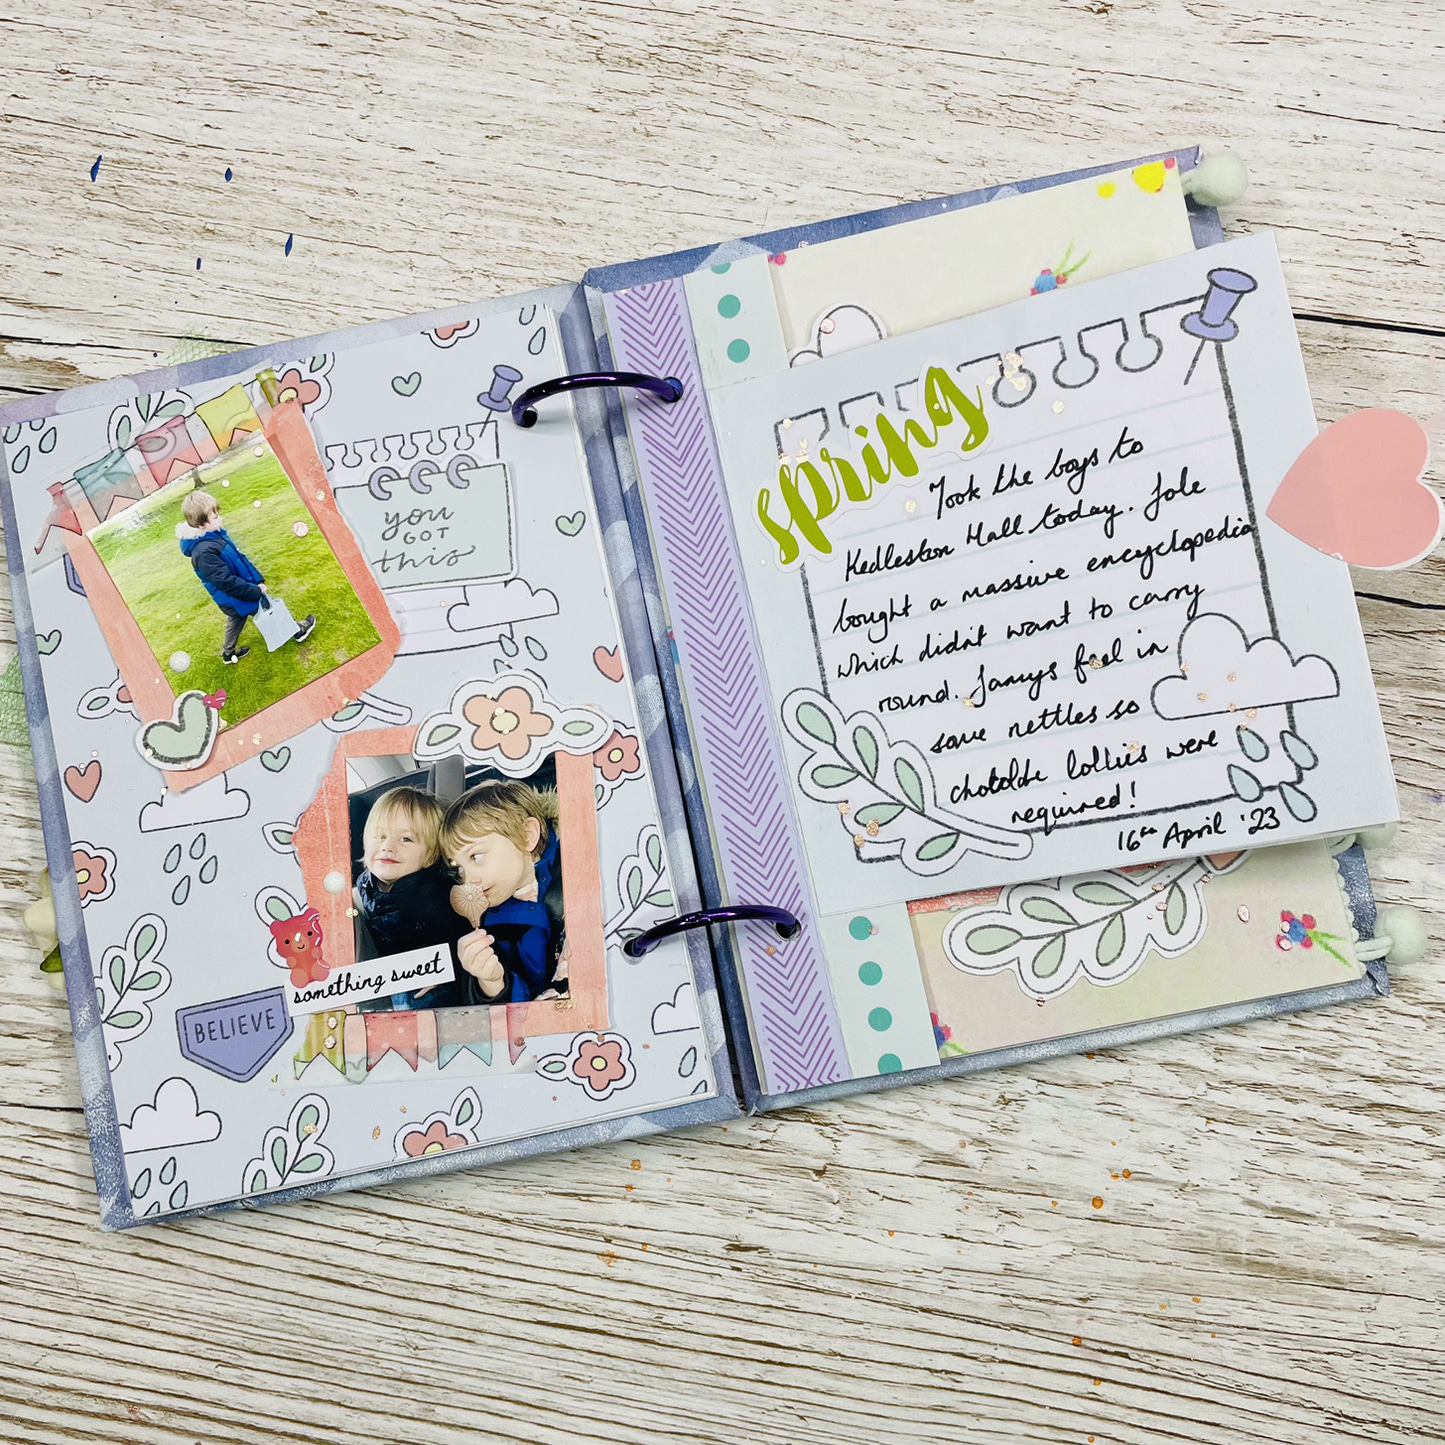 you
GOT
this
something sweet
BELIEVE
spring
Took the boys to
Kedleston Hall today. Jole
bought a massive encyclopedia
which didn't want to carry
round. fell in
some nettles so
lollies were
required!
16th April '23